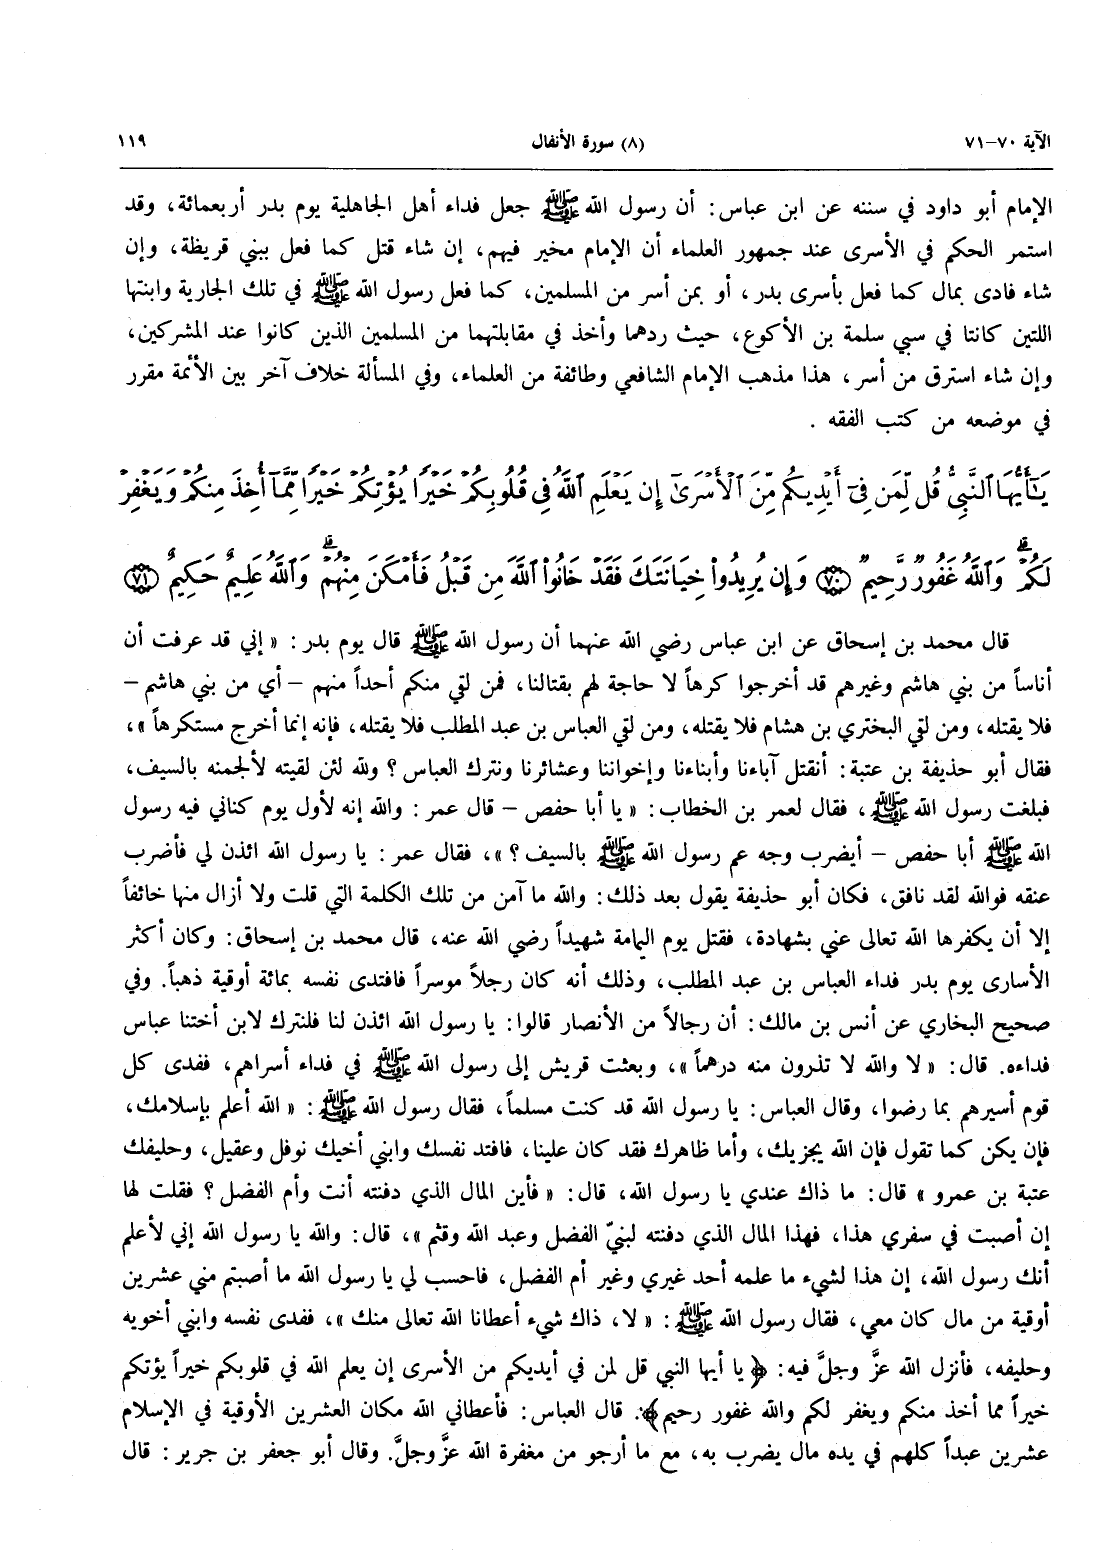 الآية ٧٠–٧١ (٨) سورة الأنفال ١١٩
الإمام أبو داود في سننه عن ابن عباس: أن رسول الله ﷺ جعل فداء أهل الجاهلية يوم بدر أربعمائة، وقد
استمر الحكم في الأسرى عند جمهور العلماء أن الإمام مخير فيهم، إن شاء قتل كما فعل ببني قريظة، وإن
شاء فادى بمال كما فعل بأسرى بدر، أو بمن أسر من المسلمين، كما فعل رسول الله ﷺ في تلك الجارية وابنتها
اللتين كانتا في سبي سلمة بن الأكوع، حيث ردهما وأخذ في مقابلتهما من المسلمين الذين كانوا عند المشركين،
وإن شاء استرق من أسر، هذا مذهب الإمام الشافعي وطائفة من العلماء، وفي المسألة خلاف آخر بين الأئمة مقرر
في موضعه من كتب الفقه .
يَٰٓأَيُّهَا ٱلنَّبِىُّ قُل لِّمَن فِىٓ أَيْدِيكُم مِّنَ ٱلْأَسْرَىٰٓ إِن يَعْلَمِ ٱللَّهُ فِى قُلُوبِكُمْ خَيْرًا يُؤْتِكُمْ خَيْرًا مِّمَّآ أُخِذَ مِنكُمْ وَيَغْفِرْ
لَكُمْ ۗ وَٱللَّهُ غَفُورٌ رَّحِيمٌ ﴿٧٠﴾ وَإِن يُرِيدُوا۟ خِيَانَتَكَ فَقَدْ خَانُوا۟ ٱللَّهَ مِن قَبْلُ فَأَمْكَنَ مِنْهُمْ ۗ وَٱللَّهُ عَلِيمٌ حَكِيمٌ ﴿٧١﴾
قال محمد بن إسحاق عن ابن عباس رضي الله عنهما أن رسول الله ﷺ قال يوم بدر : « إني قد عرفت أن
أناساً من بني هاشم وغيرهم قد أخرجوا كرهاً لا حاجة لهم بقتالنا، فمن لقي منكم أحداً منهم – أي من بني هاشم –
فلا يقتله، ومن لقي البختري بن هشام فلا يقتله، ومن لقي العباس بن عبد المطلب فلا يقتله، فإنه إنما أخرج مستكرهاً »،
فقال أبو حذيفة بن عتبة: أنقتل آباءنا وأبناءنا وإخواننا وعشائرنا ونترك العباس ؟ ولله لئن لقيته لألجمنه بالسيف،
فبلغت رسول الله ﷺ، فقال لعمر بن الخطاب: « يا أبا حفص – قال عمر : والله إنه لأول يوم كناني فيه رسول
الله ﷺ أبا حفص – أيضرب وجه عم رسول الله ﷺ بالسيف ؟ »، فقال عمر: يا رسول الله ائذن لي فأضرب
عنقه فوالله لقد نافق، فكان أبو حذيفة يقول بعد ذلك: والله ما آمن من تلك الكلمة التي قلت ولا أزال منها خائفاً
إلا أن يكفرها الله تعالى عني بشهادة، فقتل يوم اليمامة شهيداً رضي الله عنه، قال محمد بن إسحاق: وكان أكثر
الأسارى يوم بدر فداء العباس بن عبد المطلب، وذلك أنه كان رجلاً موسراً فافتدى نفسه بمائة أوقية ذهباً. وفي
صحيح البخاري عن أنس بن مالك: أن رجالاً من الأنصار قالوا: يا رسول الله ائذن لنا فلنترك لابن أختنا عباس
فداءه. قال: « لا والله لا تذرون منه درهماً »، وبعثت قريش إلى رسول الله ﷺ في فداء أسراهم، ففدى كل
قوم أسيرهم بما رضوا، وقال العباس: يا رسول الله قد كنت مسلماً، فقال رسول الله ﷺ: « الله أعلم بإسلامك،
فإن يكن كما تقول فإن الله يجزيك، وأما ظاهرك فقد كان علينا، فافتد نفسك وابني أخيك نوفل وعقيل، وحليفك
عتبة بن عمرو » قال: ما ذاك عندي يا رسول الله، قال: « فأين المال الذي دفنته أنت وأم الفضل ؟ فقلت لها
إن أصبت في سفري هذا، فهذا المال الذي دفنته لبنيّ الفضل وعبد الله وقثم »، قال: والله يا رسول الله إني لأعلم
أنك رسول الله، إن هذا لشيء ما علمه أحد غيري وغير أم الفضل، فاحسب لي يا رسول الله ما أصبتم مني عشرين
أوقية من مال كان معي، فقال رسول الله ﷺ: « لا، ذاك شيء أعطانا الله تعالى منك »، ففدى نفسه وابني أخويه
وحليفه، فأنزل الله عزَّ وجلَّ فيه: ﴿يا أيها النبي قل لمن في أيديكم من الأسرى إن يعلم الله في قلوبكم خيراً يؤتكم
خيراً مما أخذ منكم ويغفر لكم والله غفور رحيم﴾. قال العباس: فأعطاني الله مكان العشرين الأوقية في الإسلام
عشرين عبداً كلهم في يده مال يضرب به، مع ما أرجو من مغفرة الله عزَّ وجلَّ. وقال أبو جعفر بن جرير: قال